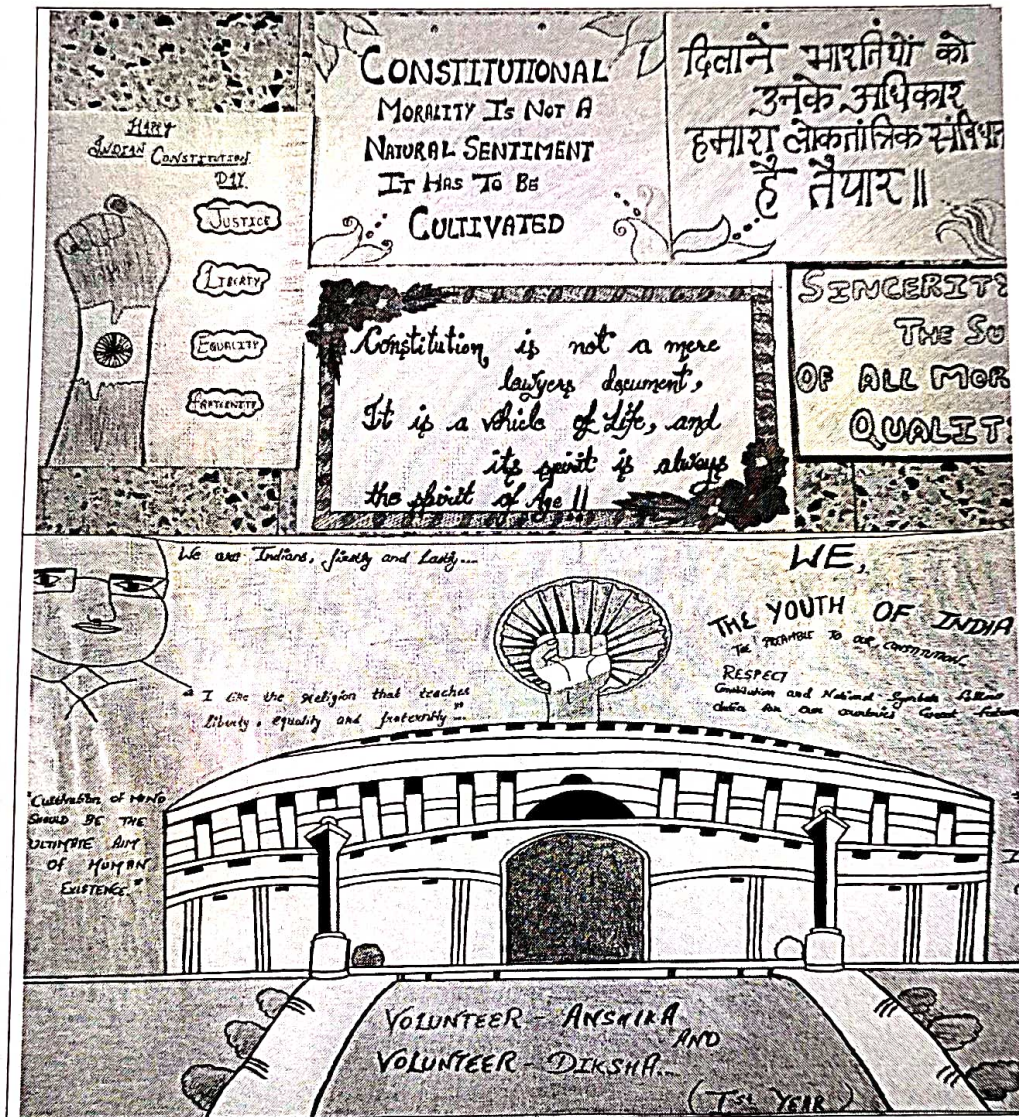 HAPPY
INDIAN CONSTITUTION
DAY
JUSTICE
LIBERTY
EQUALITY
FRATERNITY
CONSTITUTIONAL
MORALITY IS NOT A
NATURAL SENTIMENT
IT HAS TO BE
CULTIVATED
दिलाने भारतियों को
उनके अधिकार
हमारा लोकतांत्रिक संविधान
है तैयार॥
Constitution is not a mere
lawyers document,
It is a vhicle of Life, and
its spirit is always
the spirit of Age !!
SINCERITY
THE SU
OF ALL MOR
QUALIT
We are Indians, firstly and Lastly...
"I like the religion that teaches
liberty, equality and fraternity..."
"Cultivation of MIND
SHOULD BE THE
ULTIMATE AIM
OF HUMAN
EXISTENCE."
WE,
THE YOUTH OF INDIA
THE PREAMBLE TO OUR CONSTITUTION
RESPECT
Constitution and National Symbols
India for our countries Great
VOLUNTEER - ANSHIKA
AND
VOLUNTEER - DIKSHA...
(Ist YEAR)